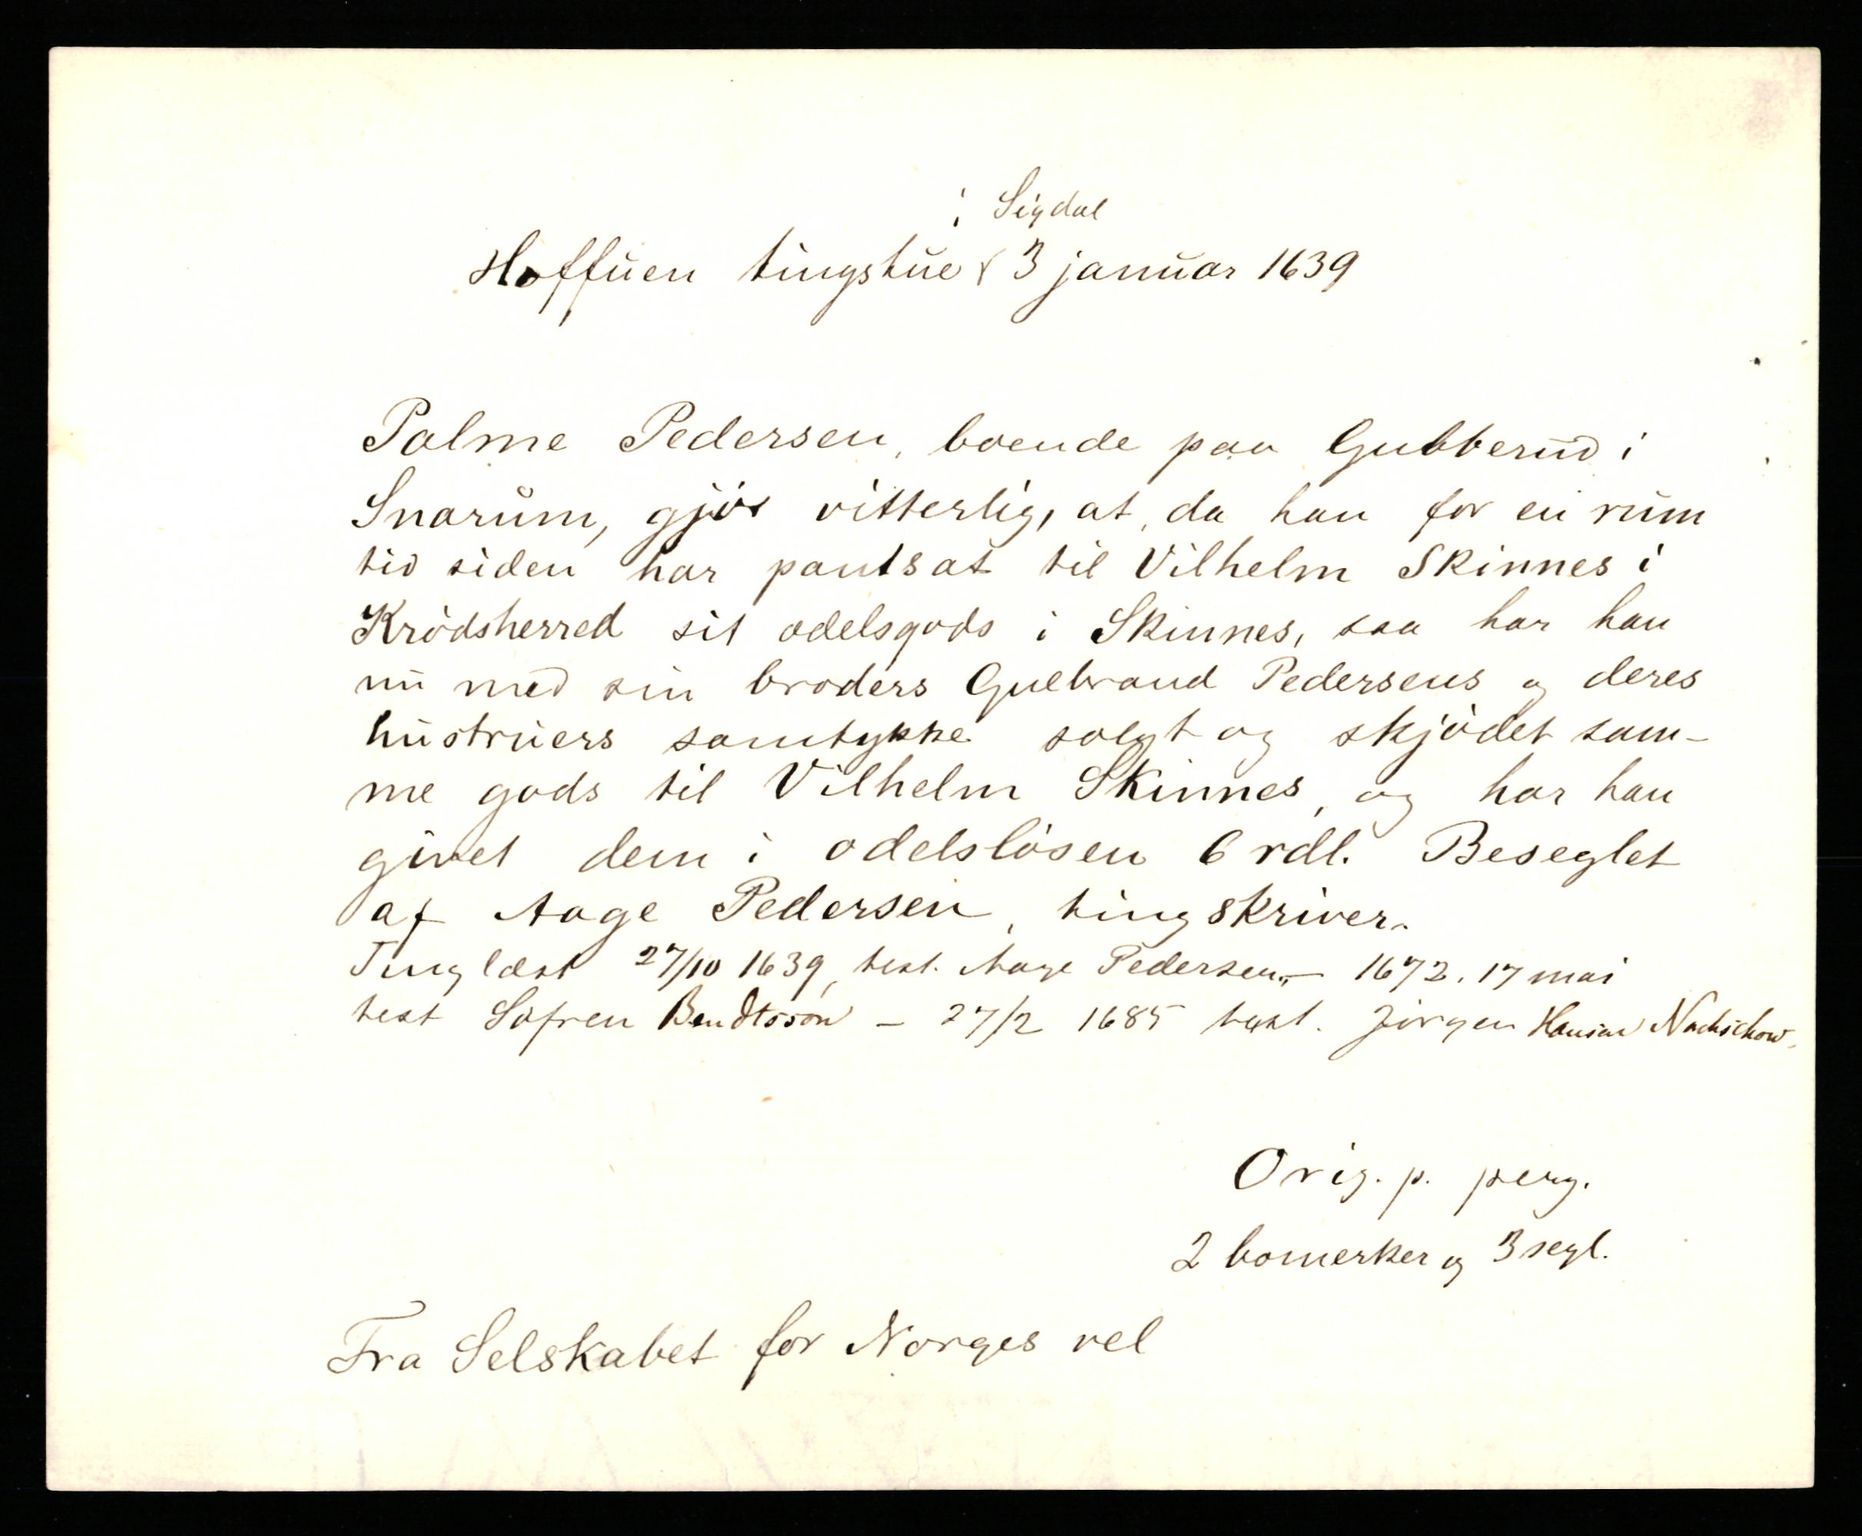 i Sigdal
Hoffuen tingstue 3 januar 1639
Palme Pedersen, boende paa Gubberud i
Snarum, gjör vitterlig, at, da han for en rum
tid siden har pantsat til Vilhelm Skinnes i
Krödsherred sit odelsgods i Skinnes, saa har han
nu med sin broders Gulbrand Pedersens og deres
hustruers samtykke solgt og skjödet sam-
me gods til Vilhelm Skinnes, og har han
givet dem i odelslösen 6 rdl. Beseglet
af Aage Pedersen, tingskriver.
Tinglæst 27/10 1639, test. Aage Pedersen, – 1672. 17 mai
test Söfren Bendtssön – 27/2 1685 test. Jörgen Hansen Nachschow.
Orig. p. perg.
2 bomerker og 3 segl.
Fra Selskabet for Norges vel